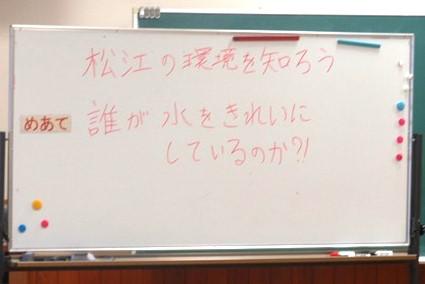 松江の環境を知ろう
めあて 誰が水をきれいに
しているのか?!